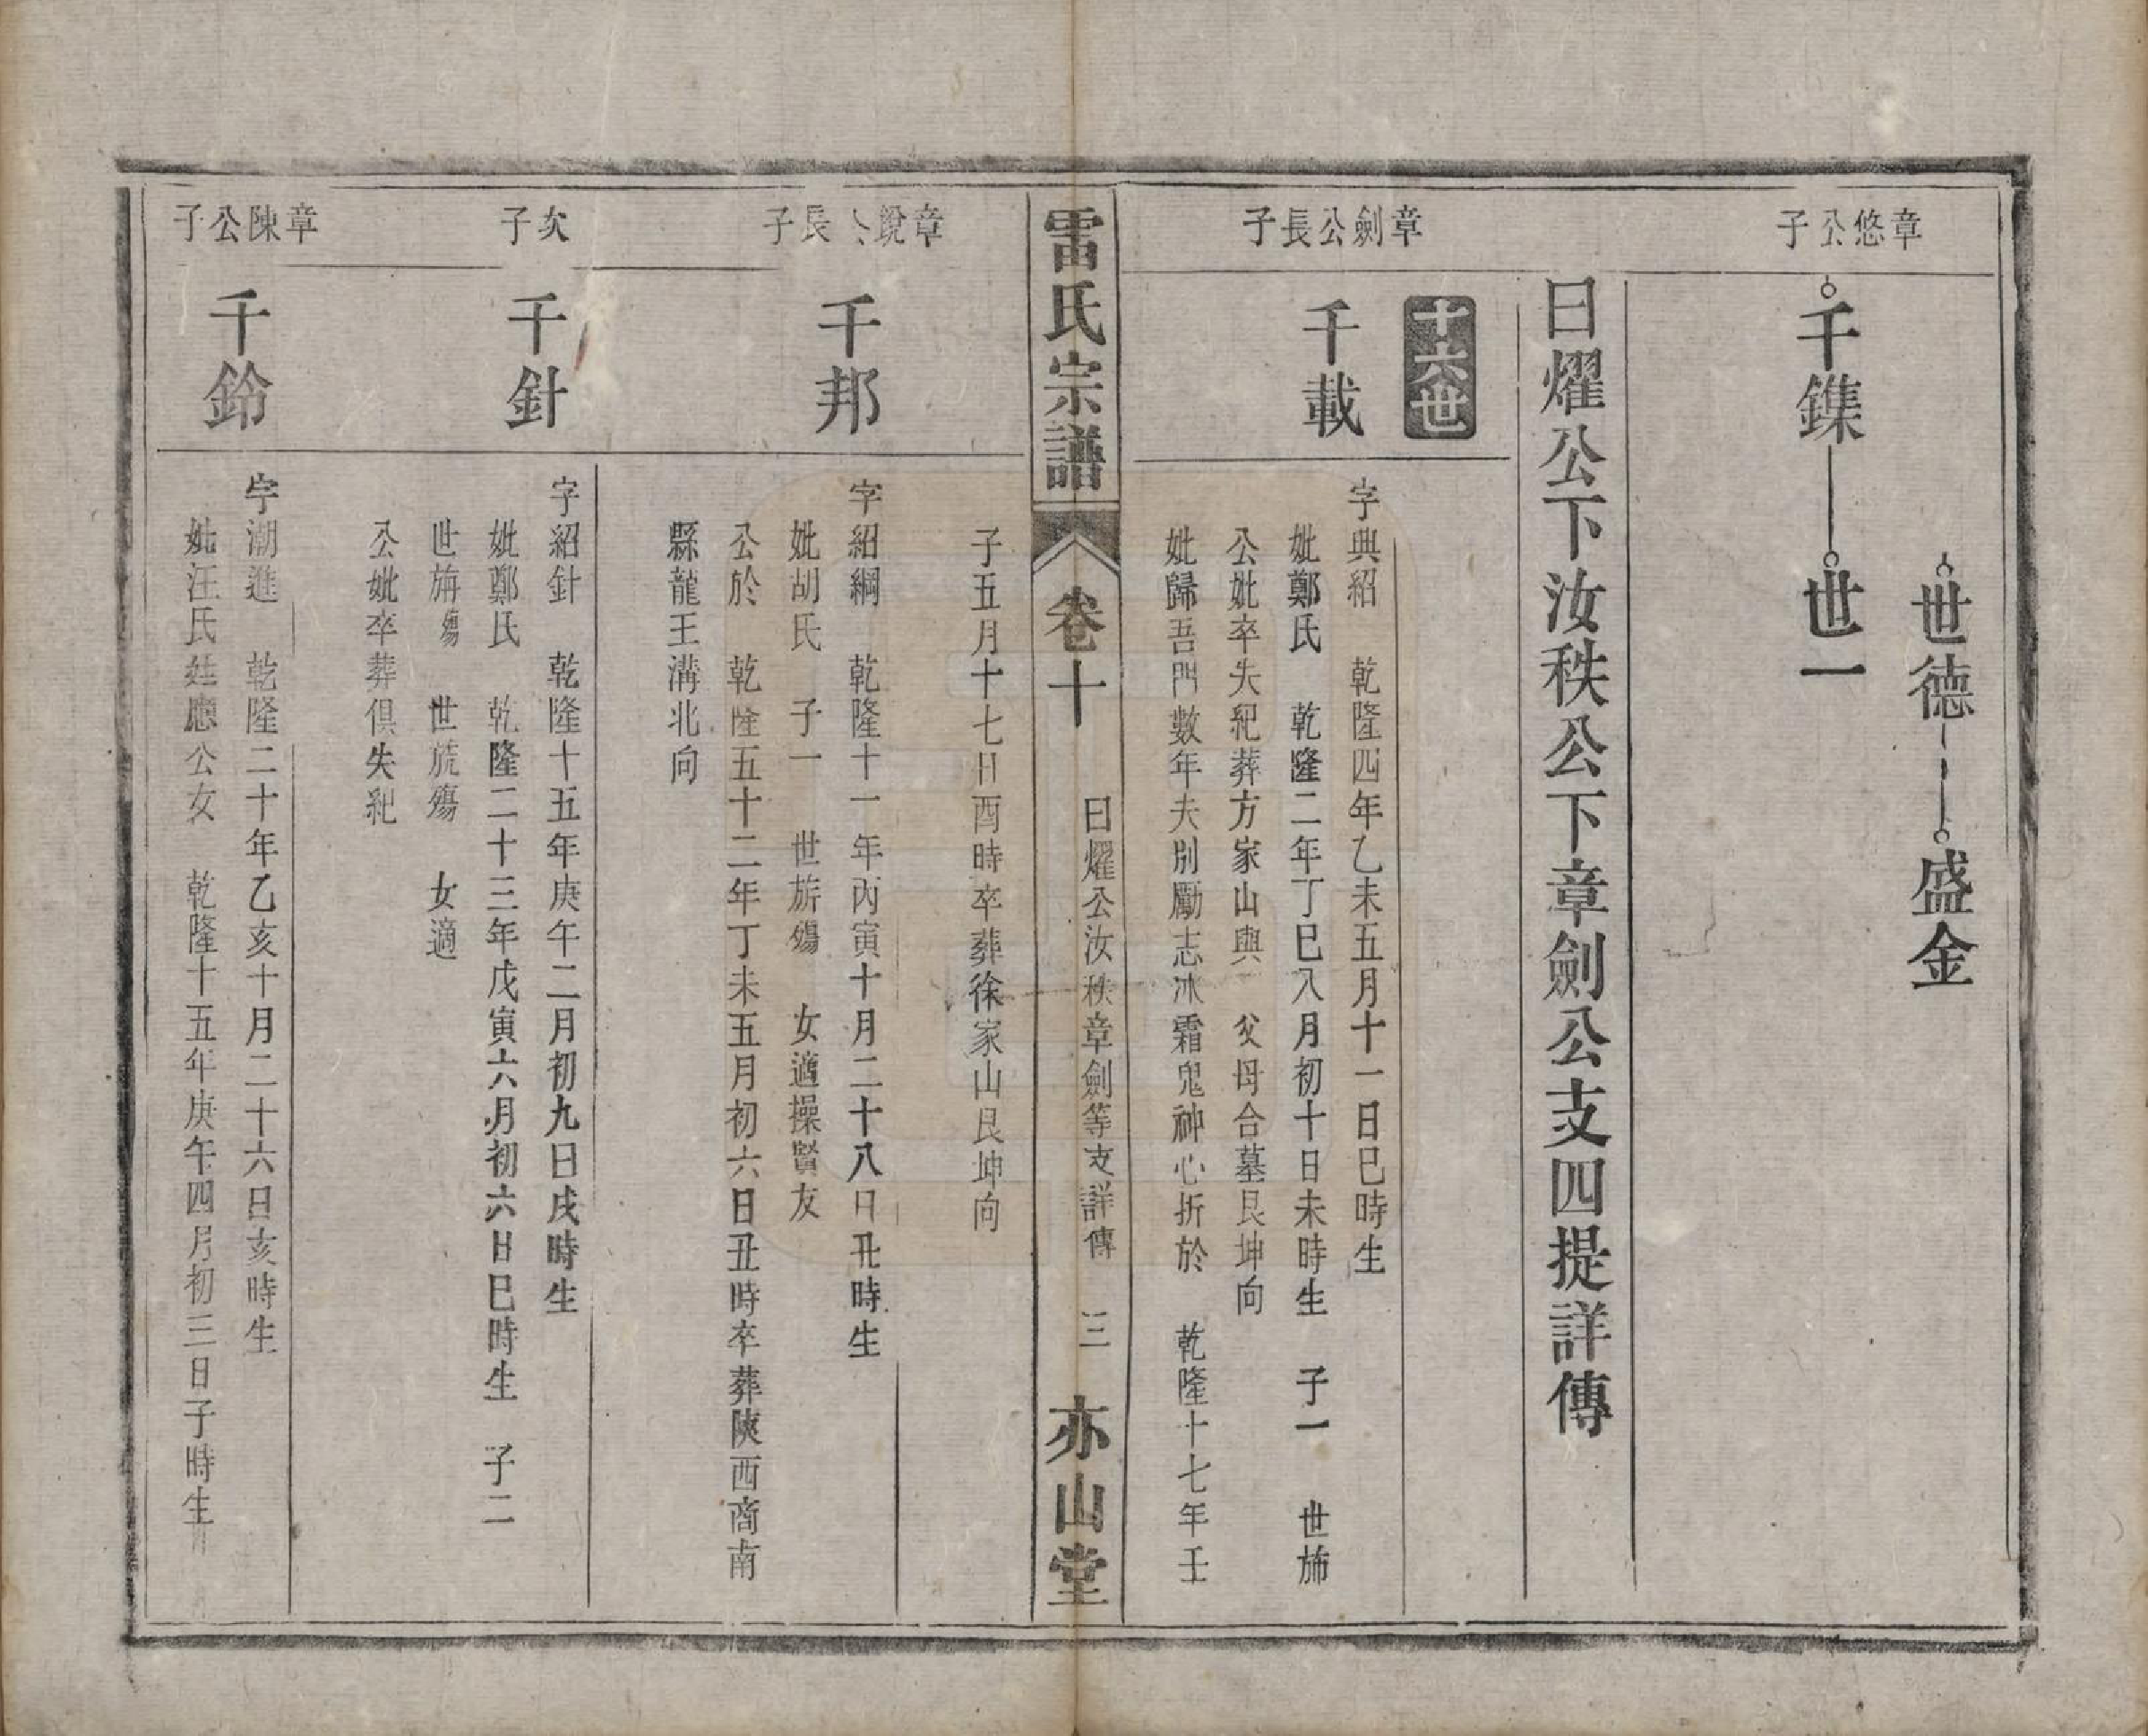 世德 盛金
章悠公子
千鏶 世一
曰燿公下汝秩公下章劍公支四提詳傳
十六世
章劍公長子
千載
字典紹 乾隆四年乙未五月十一日巳時生
妣鄭氏 乾隆二年丁巳八月初十日未時生 子一 世斾
公妣卒失紀葬方家山與 父母合墓艮坤向
妣歸吾門數年夫別勵志冰霜鬼神心折於 乾隆十七年壬
雷氏宗譜 卷十 曰燿公汝秩章劍等支詳傳 三 亦山堂
子五月十七日酉時卒葬徐家山艮坤向
章銳公長子
千邦
字紹綱 乾隆十一年丙寅十月二十八日丑時生
妣胡氏 子一 世旂殤 女適操賢友
公於 乾隆五十二年丁未五月初六日丑時卒葬陝西商南
縣龍王溝北向
次子
千針
字紹針 乾隆十五年庚午二月初九日戌時生
妣鄭氏 乾隆二十三年戊寅六月初六日巳時生 子二
世旃殤 世旒殤 女適
公妣卒葬俱失紀
章陳公子
千鈴
字潮進 乾隆二十年乙亥十月二十六日亥時生
妣汪氏姓應公女 乾隆十五年庚午四月初三日子時生